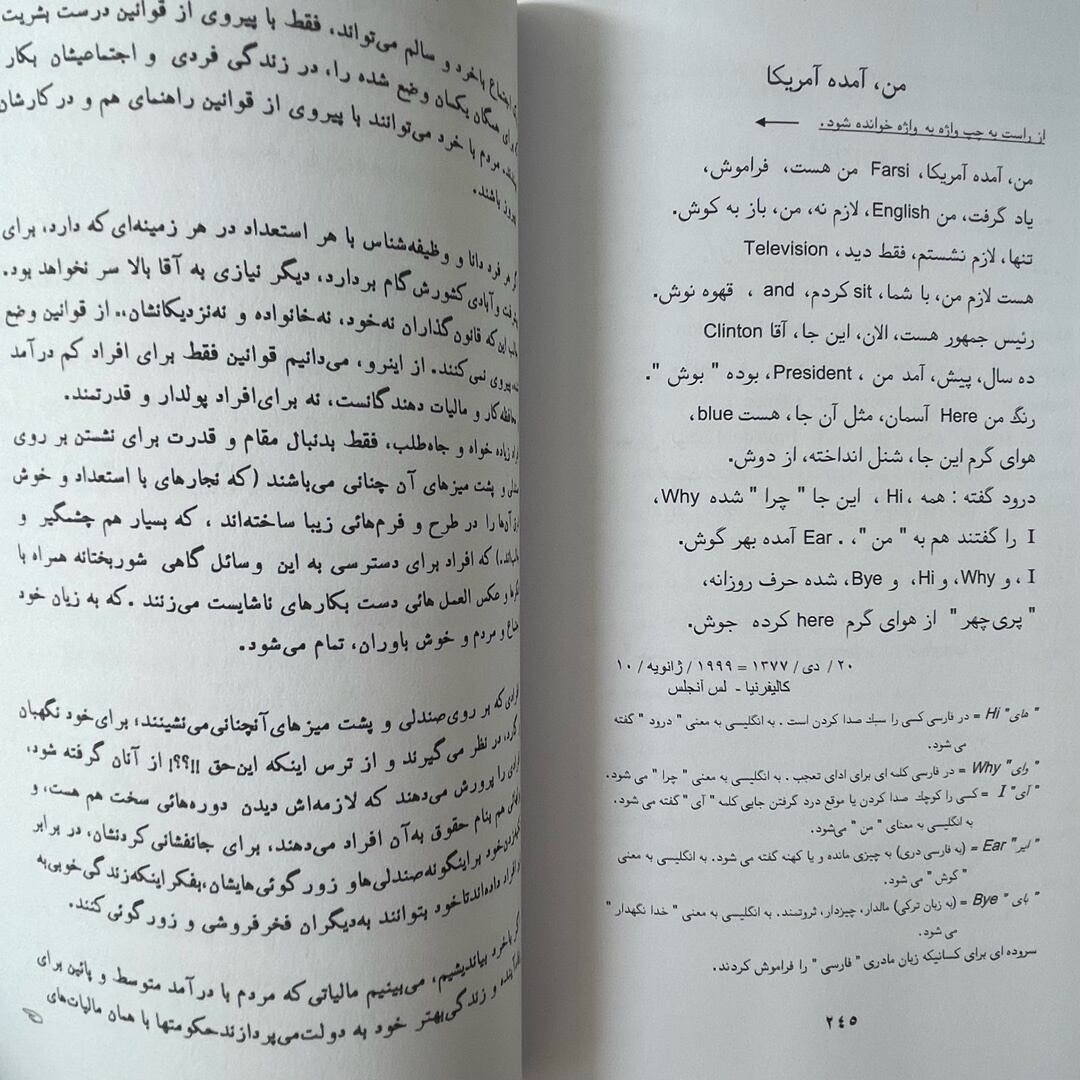 من، آمده آمریکا
از راست به چپ واژه به واژه خوانده شود. ←
من، آمده آمریکا، Farsi من هست، فراموش،
یاد گرفت، من English، لازم نه، من، باز به کوش.
تنها، لازم نشستم، فقط دید، Television
هست لازم من، با شما، sit کردم، and ، قهوه نوش.
رئیس جمهور هست، الان، این جا، آقا Clinton
ده سال، پیش، آمد من ، President، بوده " بوش ".
رنگ من Here آسمان، مثل آن جا، هست blue،
هوای گرم این جا، شنل انداخته، از دوش.
درود گفته : همه ،Hi ، این جا " چرا " شده Why،
I را گفتند هم به " من "، . Ear آمده بهر گوش.
I ، و Why، و Hi، و Bye، شده حرف روزانه،
" پری‌چهر " از هوای گرم here کرده جوش.
۲۰ / دی / ۱۳۷۷ = ۱۹۹۹ / ژانویه / ۱۰
کالیفرنیا - لس آنجلس
" های" Hi = در فارسی کسی را سبك صدا کردن است . به انگلیسی به معنی " درود " گفته
می شود.
" وای" Why = در فارسی کلمه ای برای ادای تعجب . به انگلیسی به معنی " چرا " می شود.
" آی" I = کسی را کوچك صدا کردن یا موقع درد گرفتن جایی کلمه " آی" گفته می شود.
به انگلیسی به معنای " من " می‌شود.
" ایر" Ear = (به فارسی دری) به چیزی مانده و یا کهنه گفته می شود. به انگلیسی به معنی
" گوش " می شود.
" بای " Bye = (به زبان ترکی) مالدار، چیزدار، ثروتمند. به انگلیسی به معنی " خدا نگهدار "
می شود.
سروده ای برای کسانیکه زبان مادری " فارسی " را فراموش کردند.
۲٤٥
اجتماع باخرد و سالم می‌تواند، فقط با پیروی از قوانین درست بشریت
برای همگان یکسان وضع شده را، در زندگی فردی و اجتماعیشان بکار
مردم با خرد می‌توانند با پیروی از قوانین راهنمای هم و در کارشان
باشند.
هر فرد دانا و وظیفه‌شناس با هر استعداد در هر زمینه‌ای که دارد، برای
وآبادی کشورش گام بردارد، دیگر نیازی به آقا بالا سر نخواهد بود.
این‌که قانون‌گذاران نه‌خود، نه‌خانواده و نه‌نزدیکانشان... از قوانین وضع
پیروی نمی‌کنند. از اینرو، می‌دانیم قوانین فقط برای افراد کم درآمد
کار و مالیات دهندگانست، نه برای‌افراد پولدار و قدرتمند.
زیاده خواه و جاه‌طلب، فقط بدنبال مقام و قدرت برای نشستن بر روی
و پشت میزهای آن چنانی می‌باشند (که نجارهای با استعداد و خوش
آن‌ها را در طرح و فرم‌هائی زیبا ساخته‌اند ، که بسیار هم چشمگیر و
که افراد برای دسترسی به این وسائل گاهی شوربختانه همراه با
و عکس العمل هائی دست بکارهای ناشایست می‌زنند .که به زیان خود
و مردم و خوش باوران، تمام می‌شود.
که بر روی‌صندلی و پشت میزهای آنچنانی‌می‌نشینند؛ برای‌خود نگهبان
در نظر می‌گیرند و از ترس اینکه این‌حق !!؟؟! از آنان گرفته شود،
را پرورش می‌دهند که لازمه‌اش دیدن دوره‌هائی سخت هم هست، و
هم بنام حقوق به‌آن افراد می‌دهند، برای جانفشانی کردنشان، در برابر
براینگونه‌صندلی‌هاو زورگوئی‌هایشان،بفکراینکه‌زندگی‌خوبی‌به
افراد داده‌اندتاخود بتوانند به‌دیگران فخرفروشی و زورگوئی‌کنند.
باخرد بیاندیشیم، می‌بینیم مالیاتی که مردم با درآمد متوسط و پائین برای
و زندگی‌بهتر خود به دولت‌می‌پردازندحکومتها با همان مالیات‌های